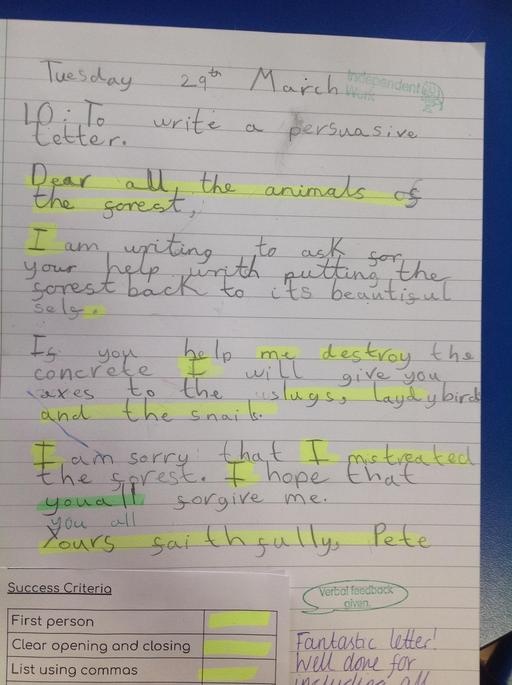 Tuesday 29th March
Independent Work
LO: To write a persuasive
letter.
Dear all, the animals of
the forest,
I am writing to ask for
your help with putting the
forest back to its beautiful
self.
If you help me destroy the
concrete I will give you
axes to the slugs, laydybird
and the snails.
I am sorry that I mistreated
the forest. I hope that
youall forgive me.
you all
Yours faithfully, Pete
Success Criteria
First person
Clear opening and closing
List using commas
Verbal feedback
given.
Fantastic letter!
Well done for
including all